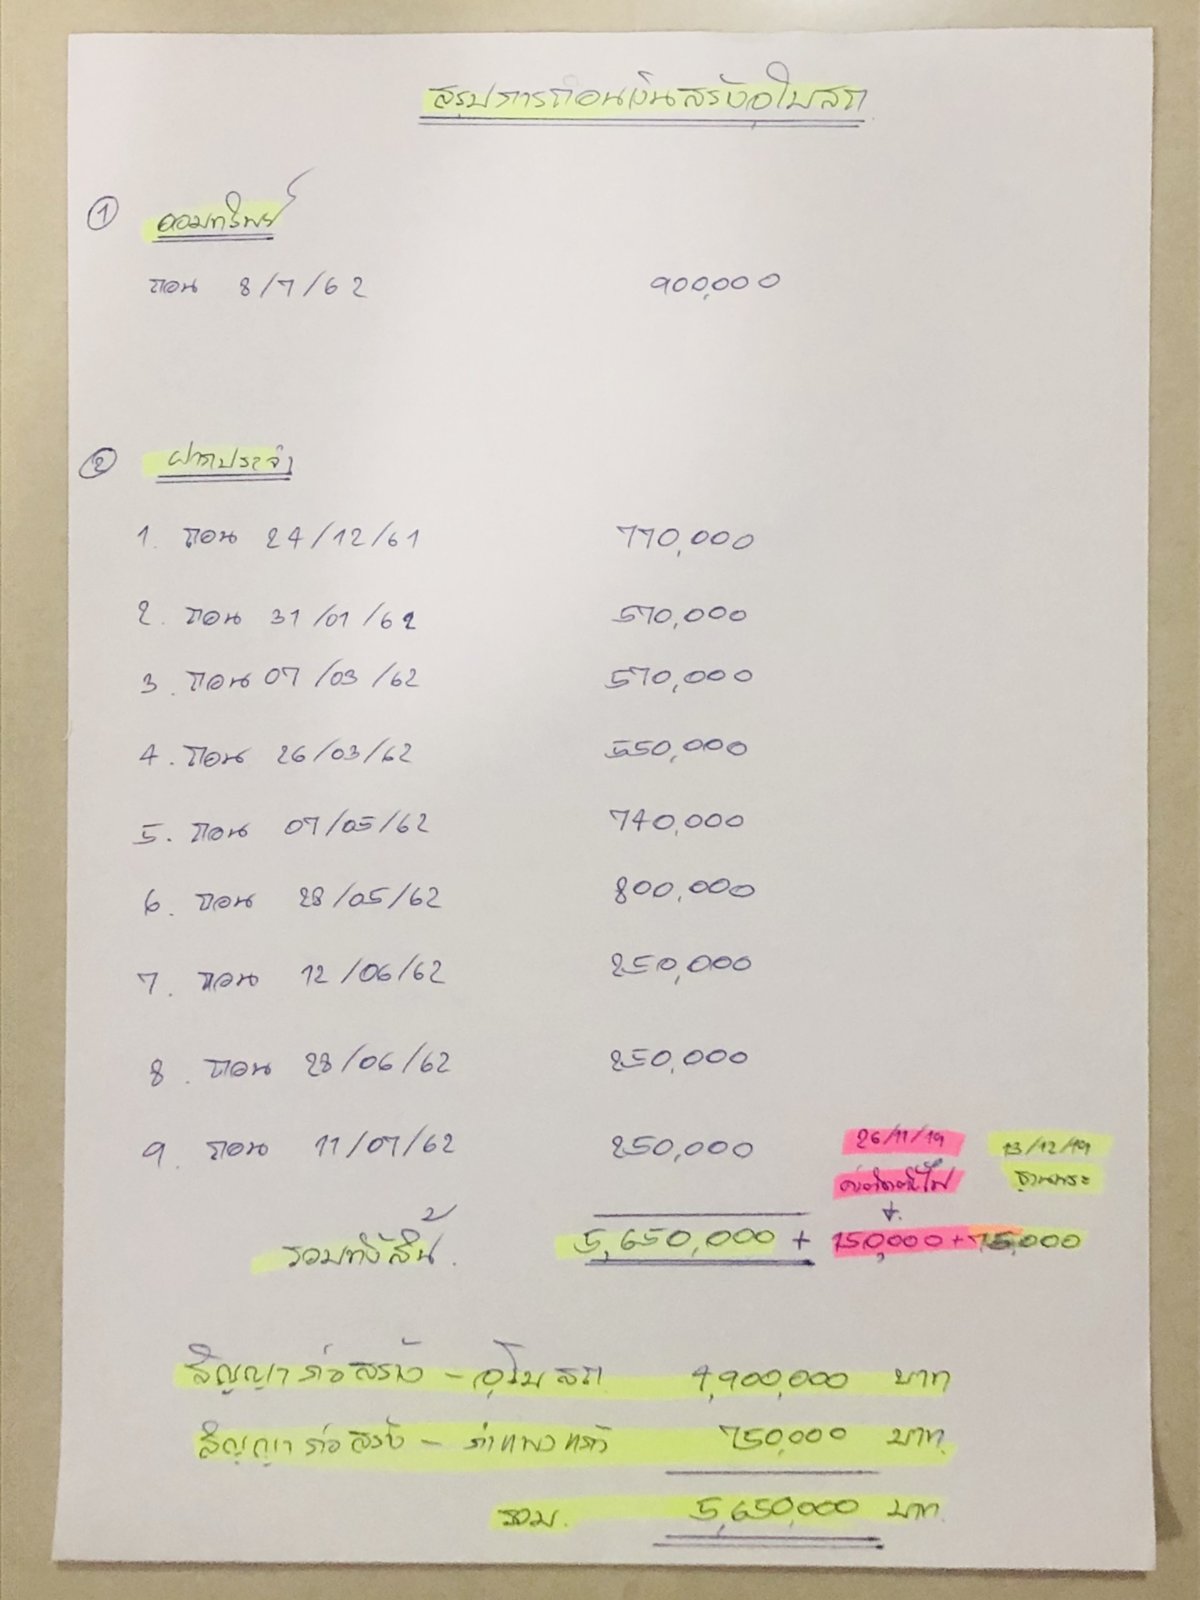 สรุปการถอนเงินสร้างอุโบสถ
① ออมทรัพย์
ถอน 8/7/62 900,000
② ฝากประจำ
1. ถอน 24/12/61 770,000
2. ถอน 31/01/62 570,000
3. ถอน 07/03/62 570,000
4. ถอน 26/03/62 550,000
5. ถอน 07/05/62 740,000
6. ถอน 28/05/62 800,000
7. ถอน 12/06/62 250,000
8. ถอน 28/06/62 250,000
9. ถอน 11/07/62 250,000
26/11/19 13/12/19
ฐานพระ
รวมทั้งสิ้น 5,650,000 + 150,000 + 75,000
สัญญาก่อสร้าง - อุโบสถ 4,900,000 บาท
สัญญาก่อสร้าง - กำแพงแก้ว 750,000 บาท
รวม. 5,650,000 บาท